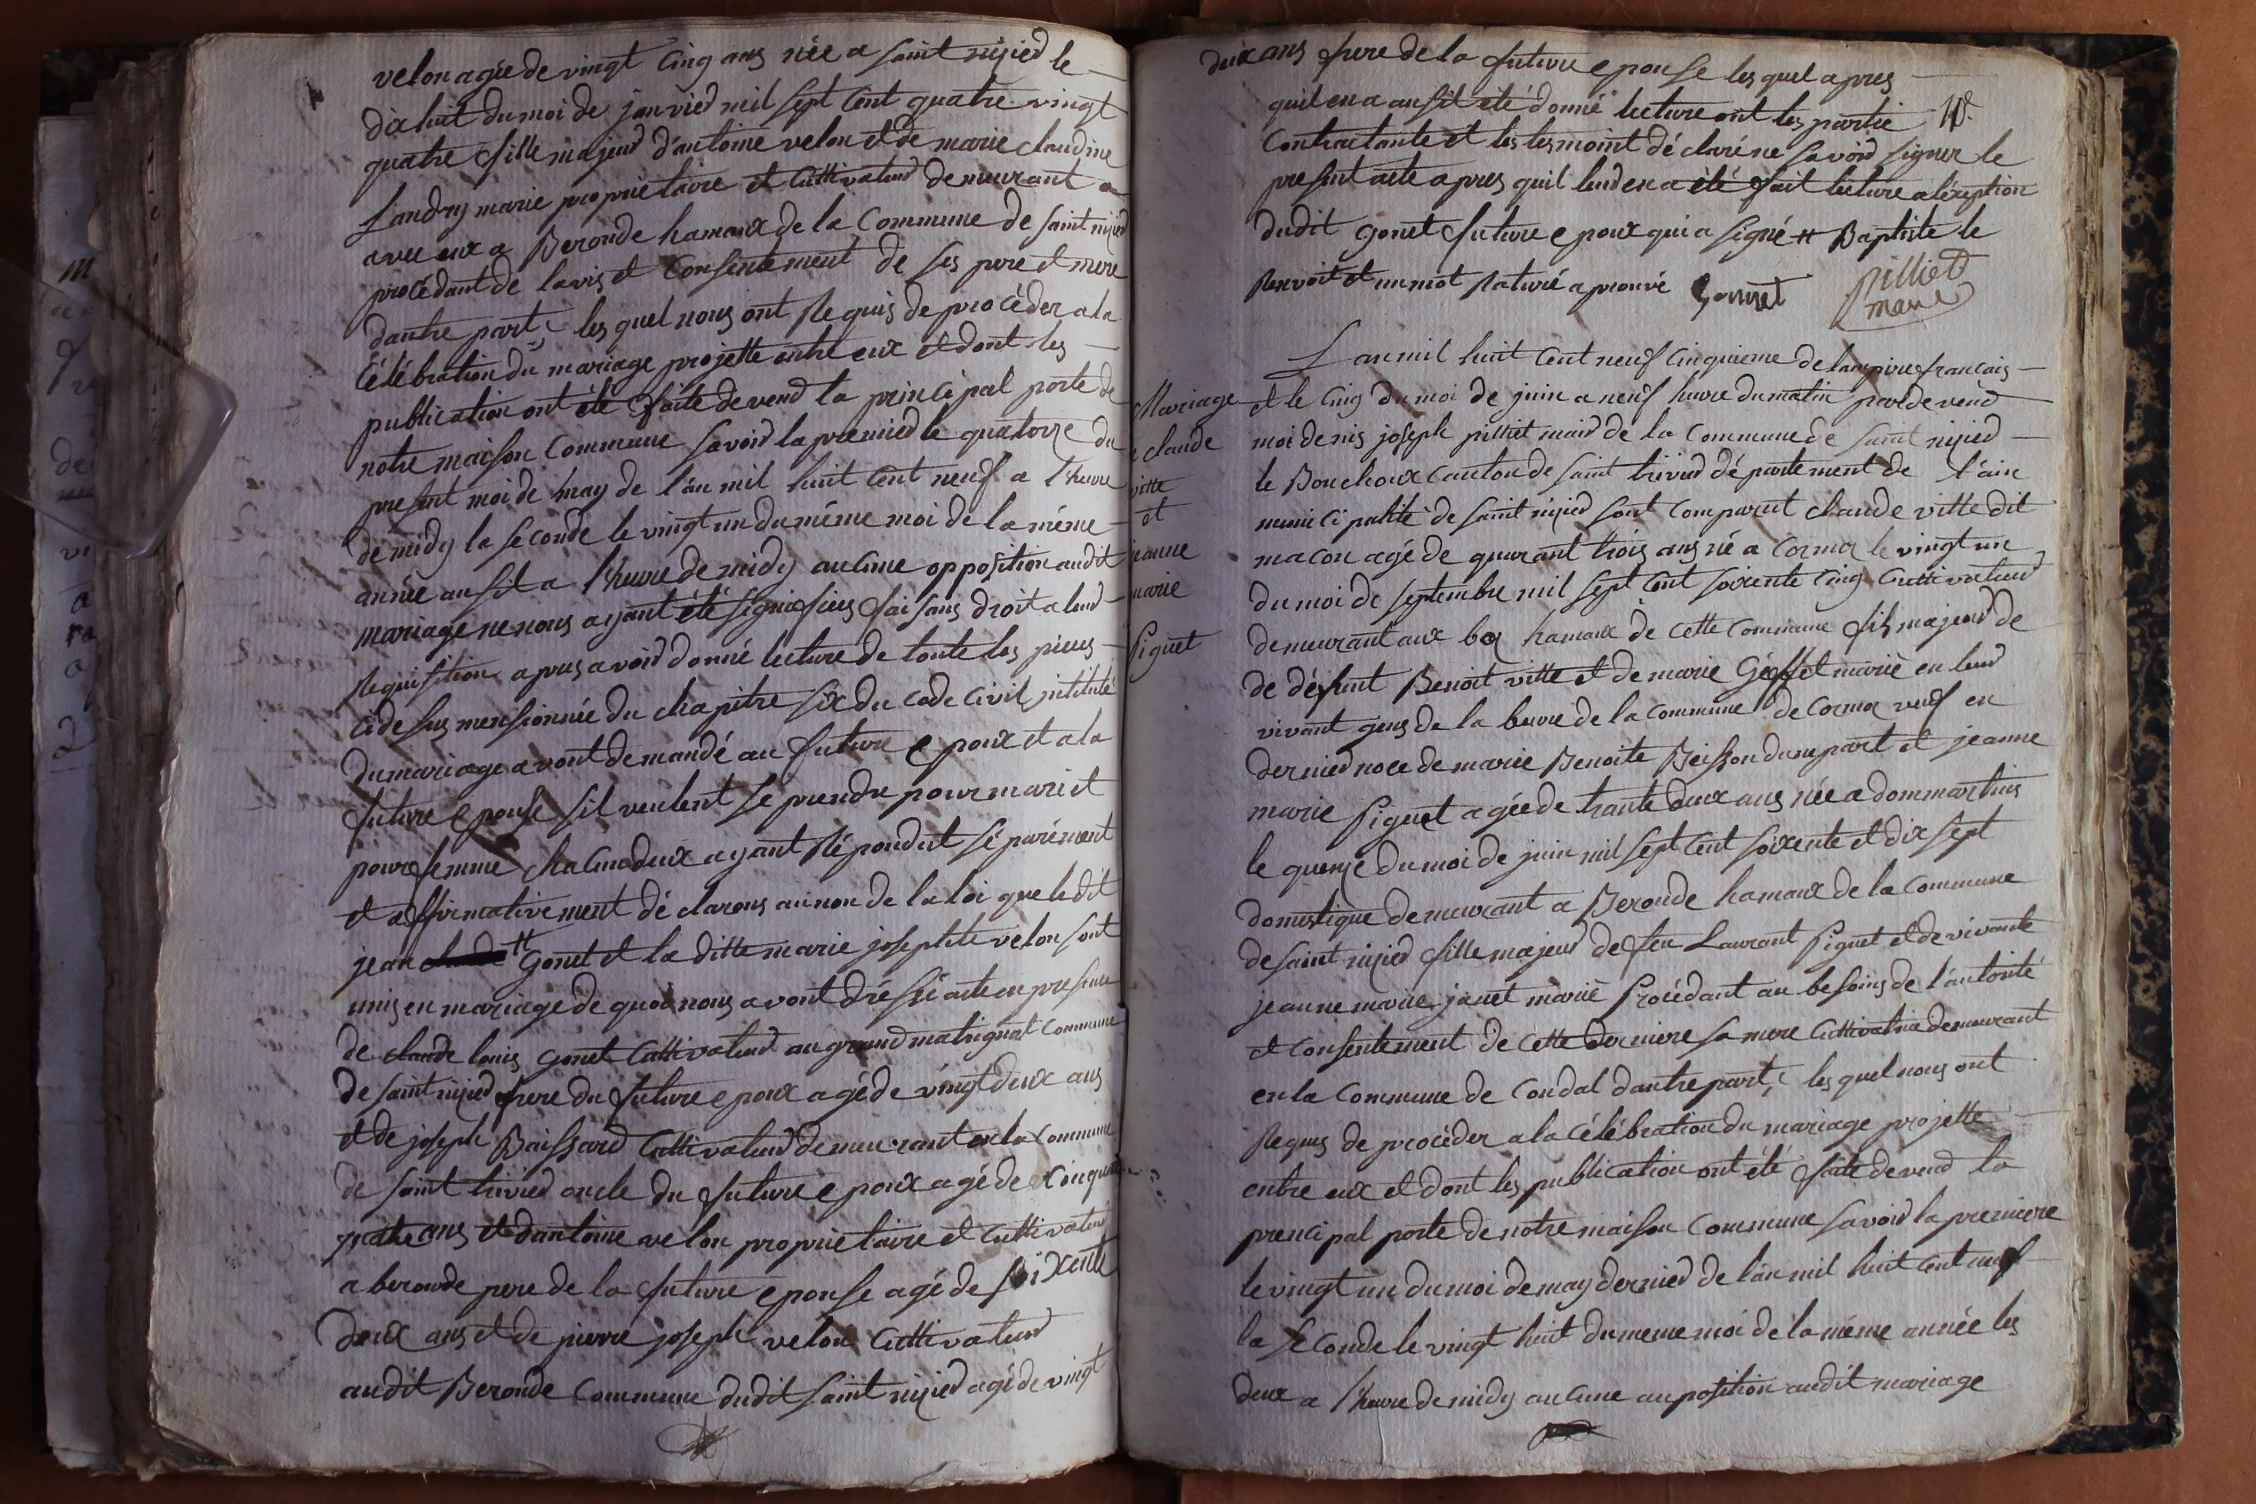 velon agée de vingt cinq ans née a saint nizied le
dix huit du moi de janvied mil sept cent quatre vingt
quatre fille majeud d'antoine velon et de marie claudine
Landry marie proprietaire et cultivateud demeurant
avec eux a Beronde hamaux de la commune de saint nizied
procédant de lavis et consentement de ses pere et mere
dautre part, les quel nous ont Requis de procéder a la
célébration du mariage projette entre eux et dont les
publication ont été faite devend la principal porte de
notre maison commune savoid la premied le quatorze du
present moi de may de l'an mil huit cent neuf a l'heure
de midy la seconde le vingt un du méme moi de la méme
année ausit a l'heure de midy aucune opposition audit
mariage ne nous ayant été signifiees faisans droit a leud
Requisition apres avoid donné lecture de toute les pieces
cidesus mensionnée du chapitre six du code civil intitulé
du mariage avont demandé au future epoux et a la
future epouse sil veulent se prendre pour mari et
pour femme chacun deux ayant Répondut séparément
et affirmativement déclarons au non de la loi que ledit
jean gonet et la ditte marie josephte velon sont
unis en mariage de quoi nous avont dréssé acte en presence
de claude louis gonet cultivateud au grand matignat commune
de saint nizied frere du future epoux agé de vingt deux ans
et de joseph Baissard cultivateud demeurant en la commune
de saint trivied oncle du future epoux agé de cinquante
quatre ans et dantoine velon proprietaire et cultivateud
a beronde pere de la future epouse agé de soixente
deux ans et de pierre joseph velon cultivateud
audit Beronde commune dudit saint nizied agé de vingt
deux ans frere de la future epouse les quel apres
quil en a ausit été donné lecture ont les partie
contractante et les tesmoint déclaré ne savoid signer le
present acte apres quil leud en a été fait lecture a léxeption
dudit gonet future epoux qui a signé # Baptiste le
Renvoit et un mot Raturé aprouvé Gonnet
pilliet
maire
Mariage
claude
vitte
et
jeanne
marie
Piguet
L'an mil huit cent neuf cinquieme de lampire francais
et le cinq du moi de juin a neuf heure du matin pardevend
moi denis joseph pilliet maid de la commune de saint nizied
le Bouchoux canton de saint trivied département de l'ain
municipalité de saint nizied sont comparut claude vitte dit
macon agé de quarant trois ans né a cormoz le vingt un
du moi de septembre mil sept cent soixente cinq cultivateud
demeurant aux hamaux de cette commune fils majeud de
de défunt Benoit vitte et de marie Géoffet marié en leud
vivant gens de la beure de la commune de cormoz veuf en
dernied noce de marie Benoite Beisson dune part et jeanne
marie Piguet agée de trante deux ans née a dommartins
le quenze du moi de juin mil sept cent soixente et dix sept
domestique demeurant a Beronde hamaux de la commune
de saint nizied fille majeud de feu Laurant Piguet et de vivante
jeanne marie janet marié Procédant au besoins de l'autorité
et consentement de cette derniere sa mere cultivatrice demeurant
en la commune de condal dautre part, les quel nous ont
Requis de procéder a la célébration du mariage projette
entre eux et dont les publication ont été faite devend la
prencipal porte de notre maison commune savoid la premiere
le vingt un du moi de may dernied de l'an mil huit cent neuf
la seconde le vingt huit du meme moi de la méme année les
deux a l'heure de midy aucune auposition audit mariage